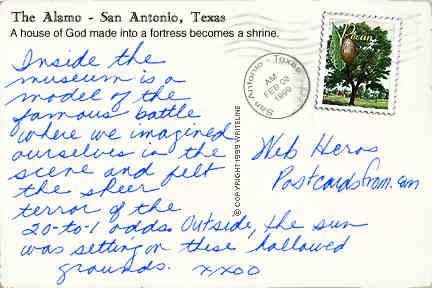 The Alamo - San Antonio, Texas
A house of God made into a fortress becomes a shrine.
Inside the
museum is a
model of the
famous battle
where we imagined
ourselves in the
scene and felt
the sheer
terror of the
20-to-1 odds. Outside, the sun
was setting on these hallowed
grounds. xxoo
San Antonio - Texas
AM
FEB 08
1999
Pecan
© COPYRIGHT 1999 WRITELINE
Web Heros
Postcardsfrom.com